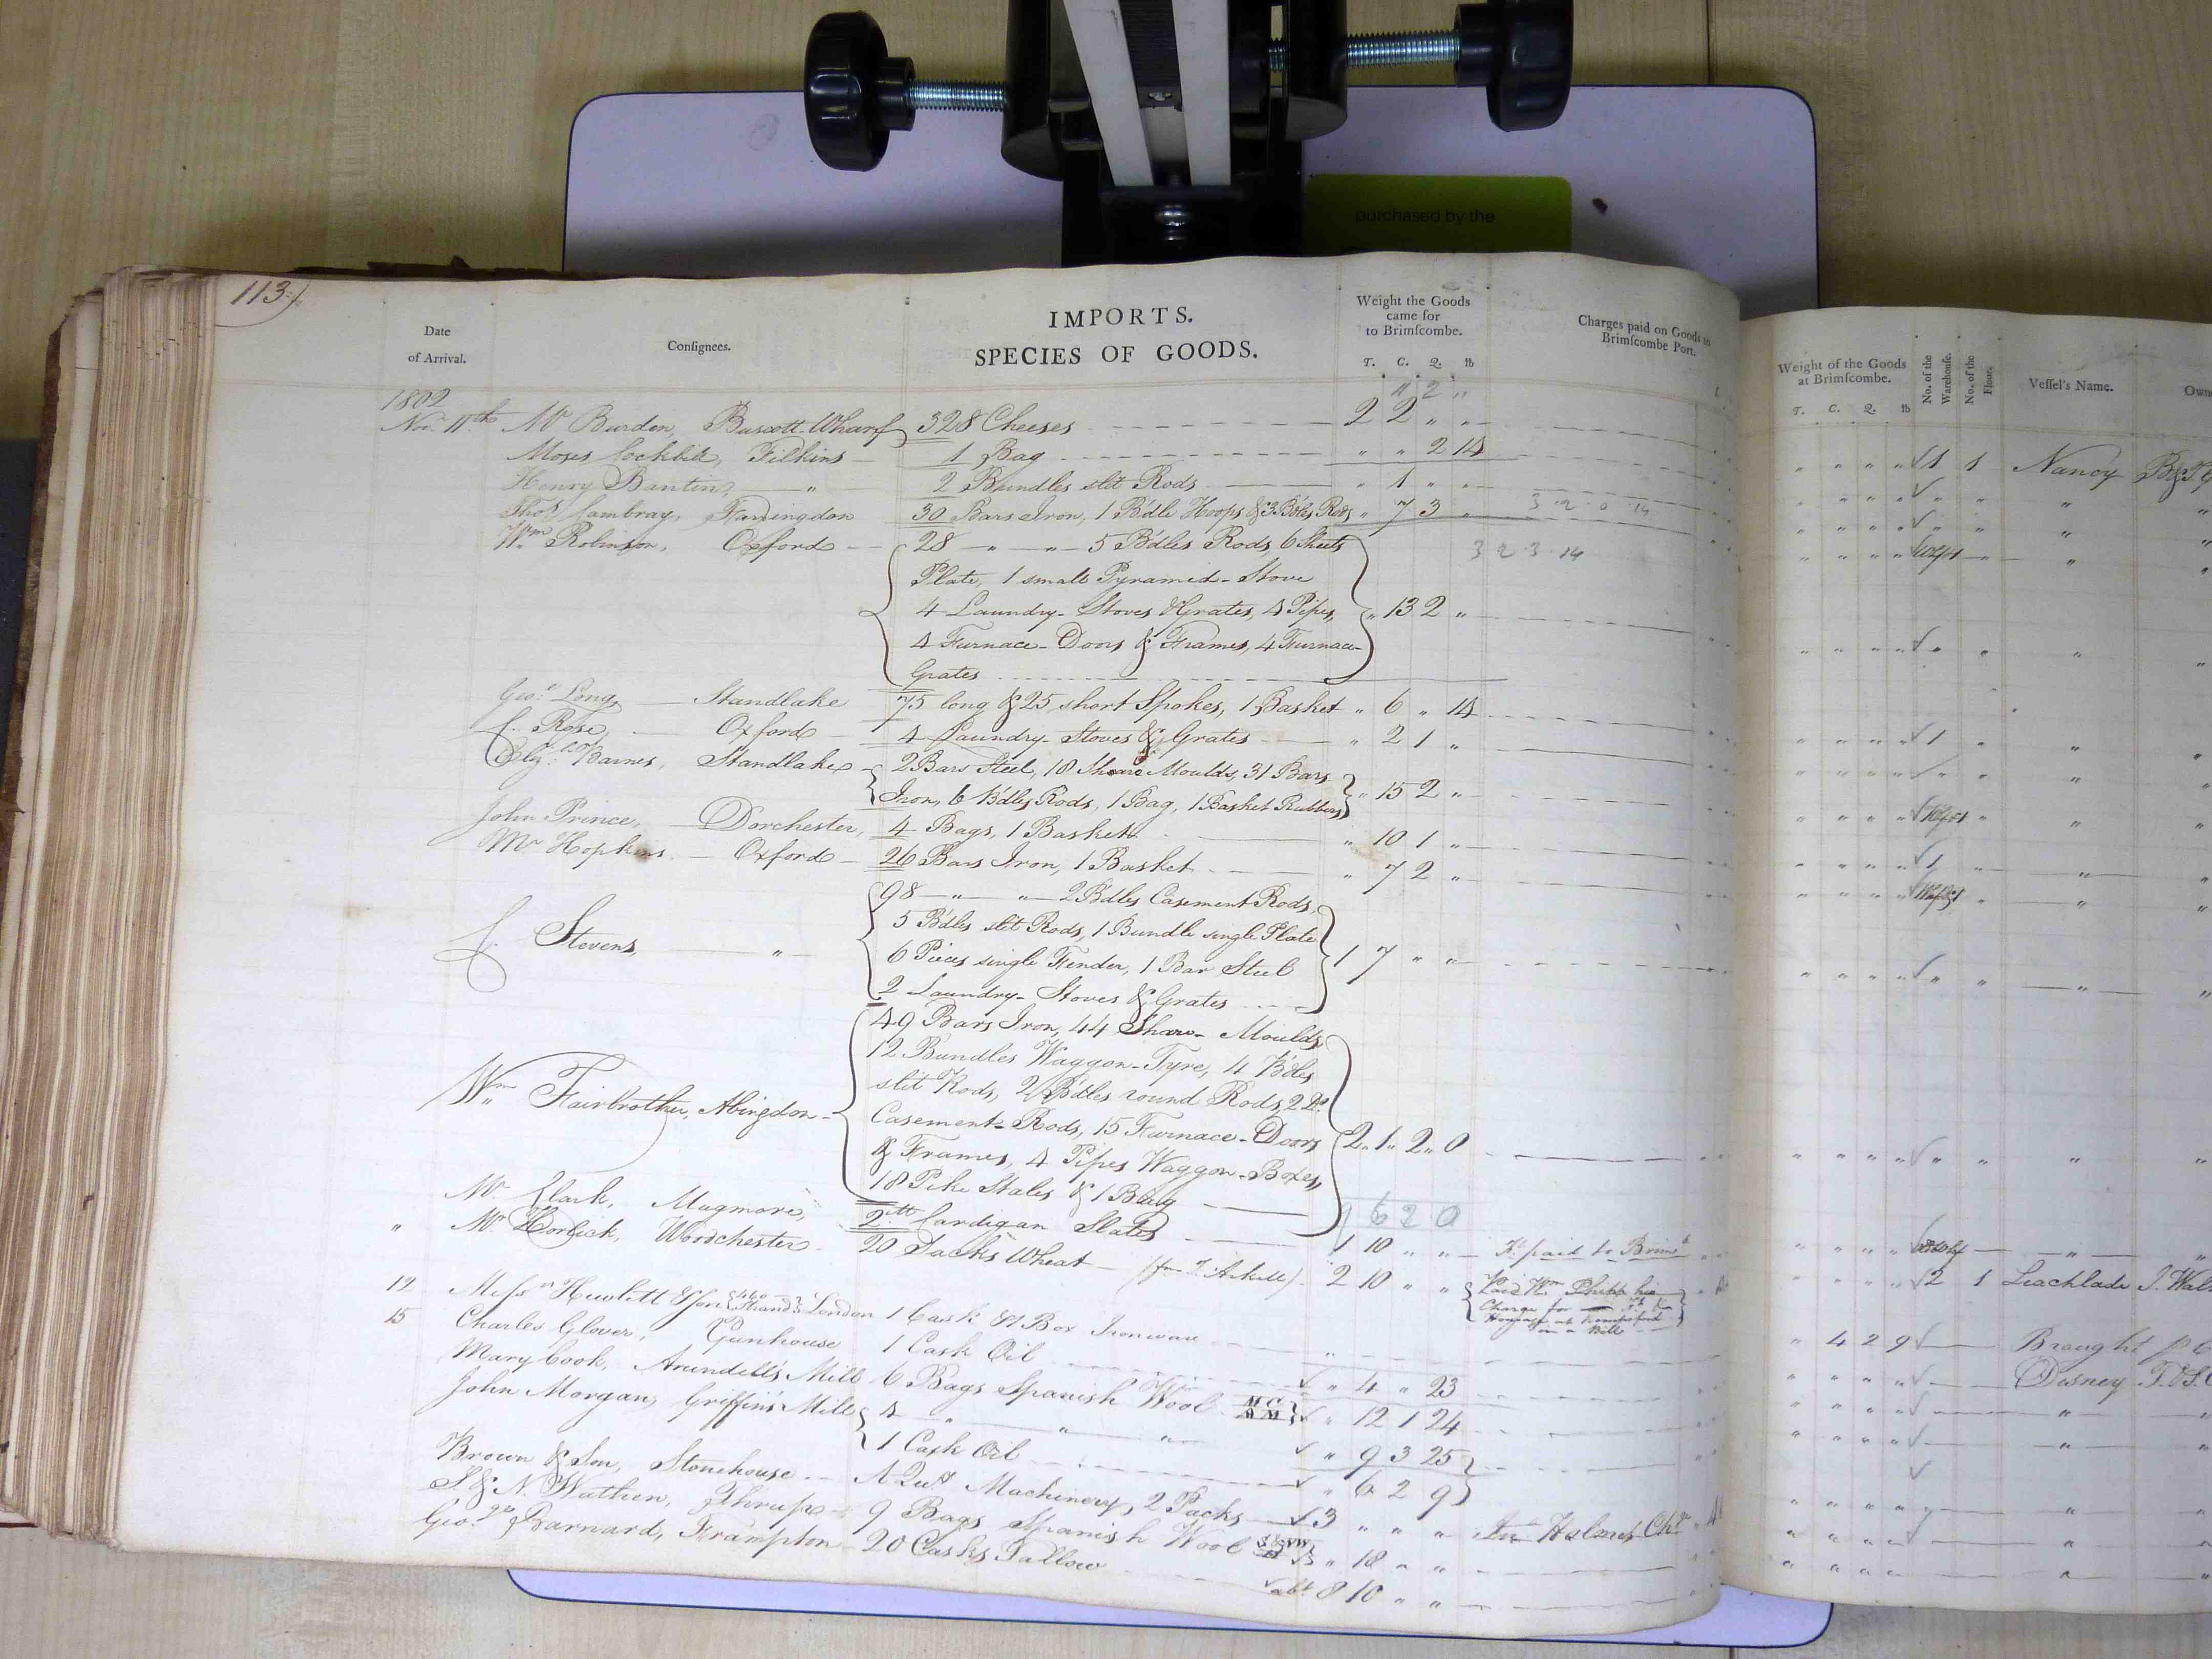 purchased by the
113
IMPORTS.
SPECIES OF GOODS.
Date of Arrival.
Consignees.
Weight the Goods came for to Brimscombe.
T. C. Q. lb
Charges paid on Goods to Brimscombe Port.
Weight of the Goods at Brimscombe.
T. C. Q. lb
No. of the Warehouse.
No. of the Floor.
Vessel's Name.
Own
1802
" 2 "
Novr. 11th Mr Burden, Buscott Wharf 328 Cheeses 2 2 " " 1 1 Nancy
Moses Cockbill, Filkins 1 Bag " " 2 14
Henry Banting " 2 Bundles slit Rods " 1 " "
Thos. Cambray, Farringdon 30 Bars Iron, 1 B'dle Hoops & 3 B'dles Rods " 7 3 " 3 2 0 14
Wm Robinson, Oxford 28 " " 5 B'dles Rods, 6 Sheets 3 2 3 14
Plate, 1 small Pyramid-Stove
4 Laundry-Stoves & Grates, 4 Pipes, " 13 2 "
4 Furnace-Doors & Frames, 4 Furnace-
Grates
Geo. Long, Standlake 75 long & 25 short Spokes, 1 Basket " 6 " 14 1
C. Rose, Oxford 4 Laundry-Stoves & Grates " 2 1 "
Barnes, Standlake 2 Bars Steel, 18 Share Moulds, 31 Bars
Iron, 6 B'dles Rods, 1 Bag, 1 Basket Rubbers " 15 2 "
John Prince, Dorchester, 4 Bags, 1 Basket " 10 1 " 1
Mr Hopkins, Oxford 26 Bars Iron, 1 Basket " 7 2 "
98 " " 2 B'dles Casement Rods,
5 B'dles slit Rods, 1 Bundle single Plate
Stevens, " 6 Pieces single Fender, 1 Bar Steel 1 7 " "
2 Laundry-Stoves & Grates
49 Bars Iron, 44 Share-Moulds
12 Bundles Waggon-Tyre, 4 B'dles
slit Rods, 2 B'dles round Rods, 2 Do.
Wm Fairbrother, Abingdon Casement-Rods, 15 Furnace-Doors 2 " 1 " 2 " 0
& Frames, 4 Pipes Waggon-Boxes,
18 Pike Stales & 1 Bag
9 6 2 0
Mr Clark, Mugmore, 2 tt Cardigan Slates 1 10 " " Ft. paid to Brimb
" Mr Horlick, Woodchester 20 Sacks Wheat (fm T. Arkell) 2 10 " " Paid Wm Phipp his 2 1 Leachlade
Charge for
at Kempsford
in a Bill
12 Messrs Hewlitt & Son 140 Strand London 1 Cask & 1 Box Ironware " 4 2 9 Brought
15 Charles Glover, Gunhouse 1 Cask Oil " 4 " 23 Disney
Mary Cook, Arundells Mill 6 Bags Spanish Wool " 12 1 24
John Morgan, Griffin's Mill 4 " " " " 9 3 25
1 Cask Oil " 6 2 9
Brown & Son, Stonehouse A Quy. Machinery, 2 Packs 3 " " " Holmes Chr
S & N. Wathen, Thrupp 9 Bags Spanish Wool " 18 " "
Geo. Barnard, Frampton 20 Casks Tallow abt 8 10 " "